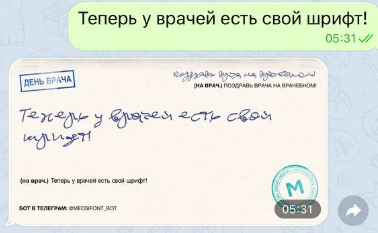 Теперь у врачей есть свой шрифт!
05:31
ДЕНЬ ВРАЧА
поздравь врача на врачебном!
(НА ВРАЧ.) ПОЗДРАВЬ ВРАЧА НА ВРАЧЕБНОМ!
Теперь у врачей есть свой
шрифт!
(на врач.) Теперь у врачей есть свой шрифт!
М
БОТ В ТЕЛЕГРАМ: @MEDSIFONT_BOT
05:31